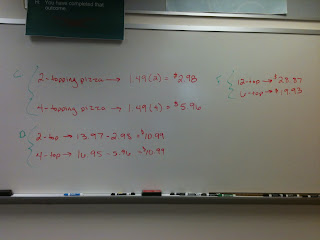 You have completed that
outcome.
C
2-topping pizza → 1.49(2) = $2.98
4-topping pizza → 1.49(4) = $5.96
D
2-top → 13.97 - 2.98 = $10.99
4-top → 16.95 - 5.96 = $10.99
E
12-top → $28.87
6-top → $19.93